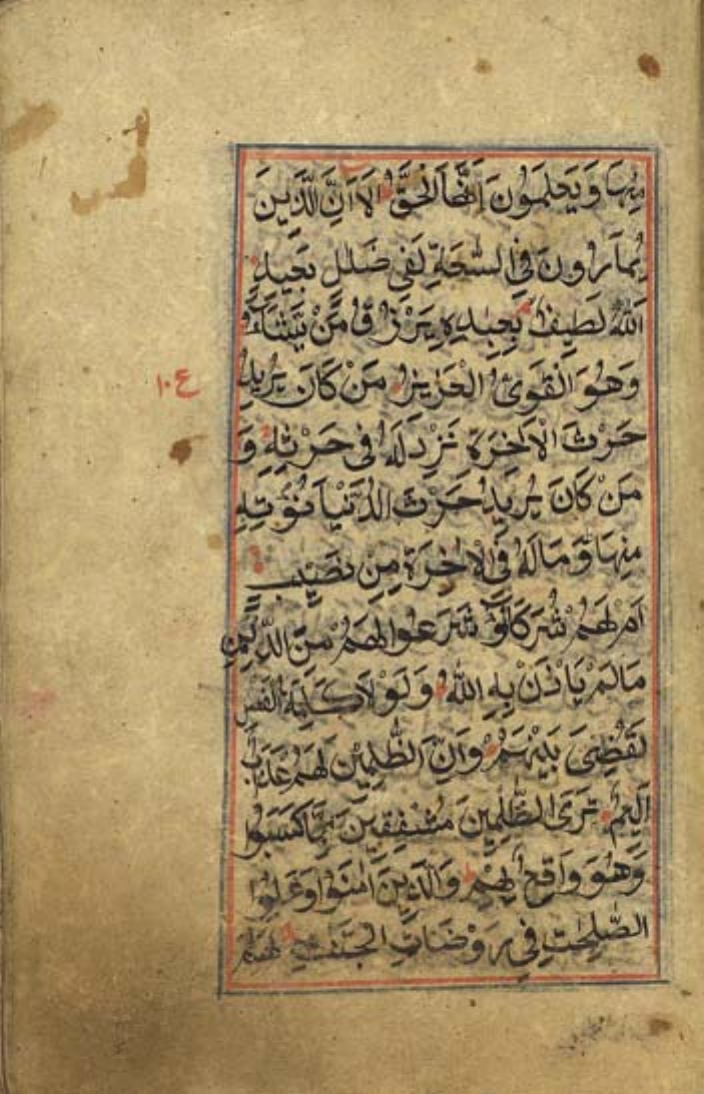 مِنْهَا وَيَعْلَمُونَ اَنَّهَا الْحَقُّ اَلَا اِنَّ الَّذِيْنَ
يُمَارُوْنَ فِى السَّاعَةِ لَفِى ضَلٰلٍ بَعِيْدٍ
اَللّٰهُ لَطِيْفٌ بِعِبَادِهٖ يَرْزُقُ مَنْ يَّشَآءُ
وَهُوَ الْقَوِىُّ الْعَزِيْزُ مَنْ كَانَ يُرِيْدُ
ع ١٠
حَرْثَ الْاٰخِرَةِ نَزِدْ لَهٗ فِى حَرْثِهٖ وَ
مَنْ كَانَ يُرِيْدُ حَرْثَ الدُّنْيَا نُؤْتِهٖ
مِنْهَا وَمَا لَهٗ فِى الْاٰخِرَةِ مِنْ نَّصِيْبٍ
اَمْ لَهُمْ شُرَكٰٓؤُا شَرَعُوْا لَهُمْ مِنَ الدِّيْنِ
مَا لَمْ يَاْذَنْ بِهِ اللّٰهُ وَلَوْ لَا كَلِمَةُ الْفَصْلِ
لَقُضِىَ بَيْنَهُمْ وَاِنَّ الظّٰلِمِيْنَ لَهُمْ عَذَابٌ
اَلِيْمٌ تَرَى الظّٰلِمِيْنَ مُشْفِقِيْنَ مِمَّا كَسَبُوْا
وَهُوَ وَاقِعٌ بِهِمْ وَالَّذِيْنَ اٰمَنُوْا وَعَمِلُوا
الصّٰلِحٰتِ فِى رَوْضَاتِ الْجَنّٰتِ لَهُمْ